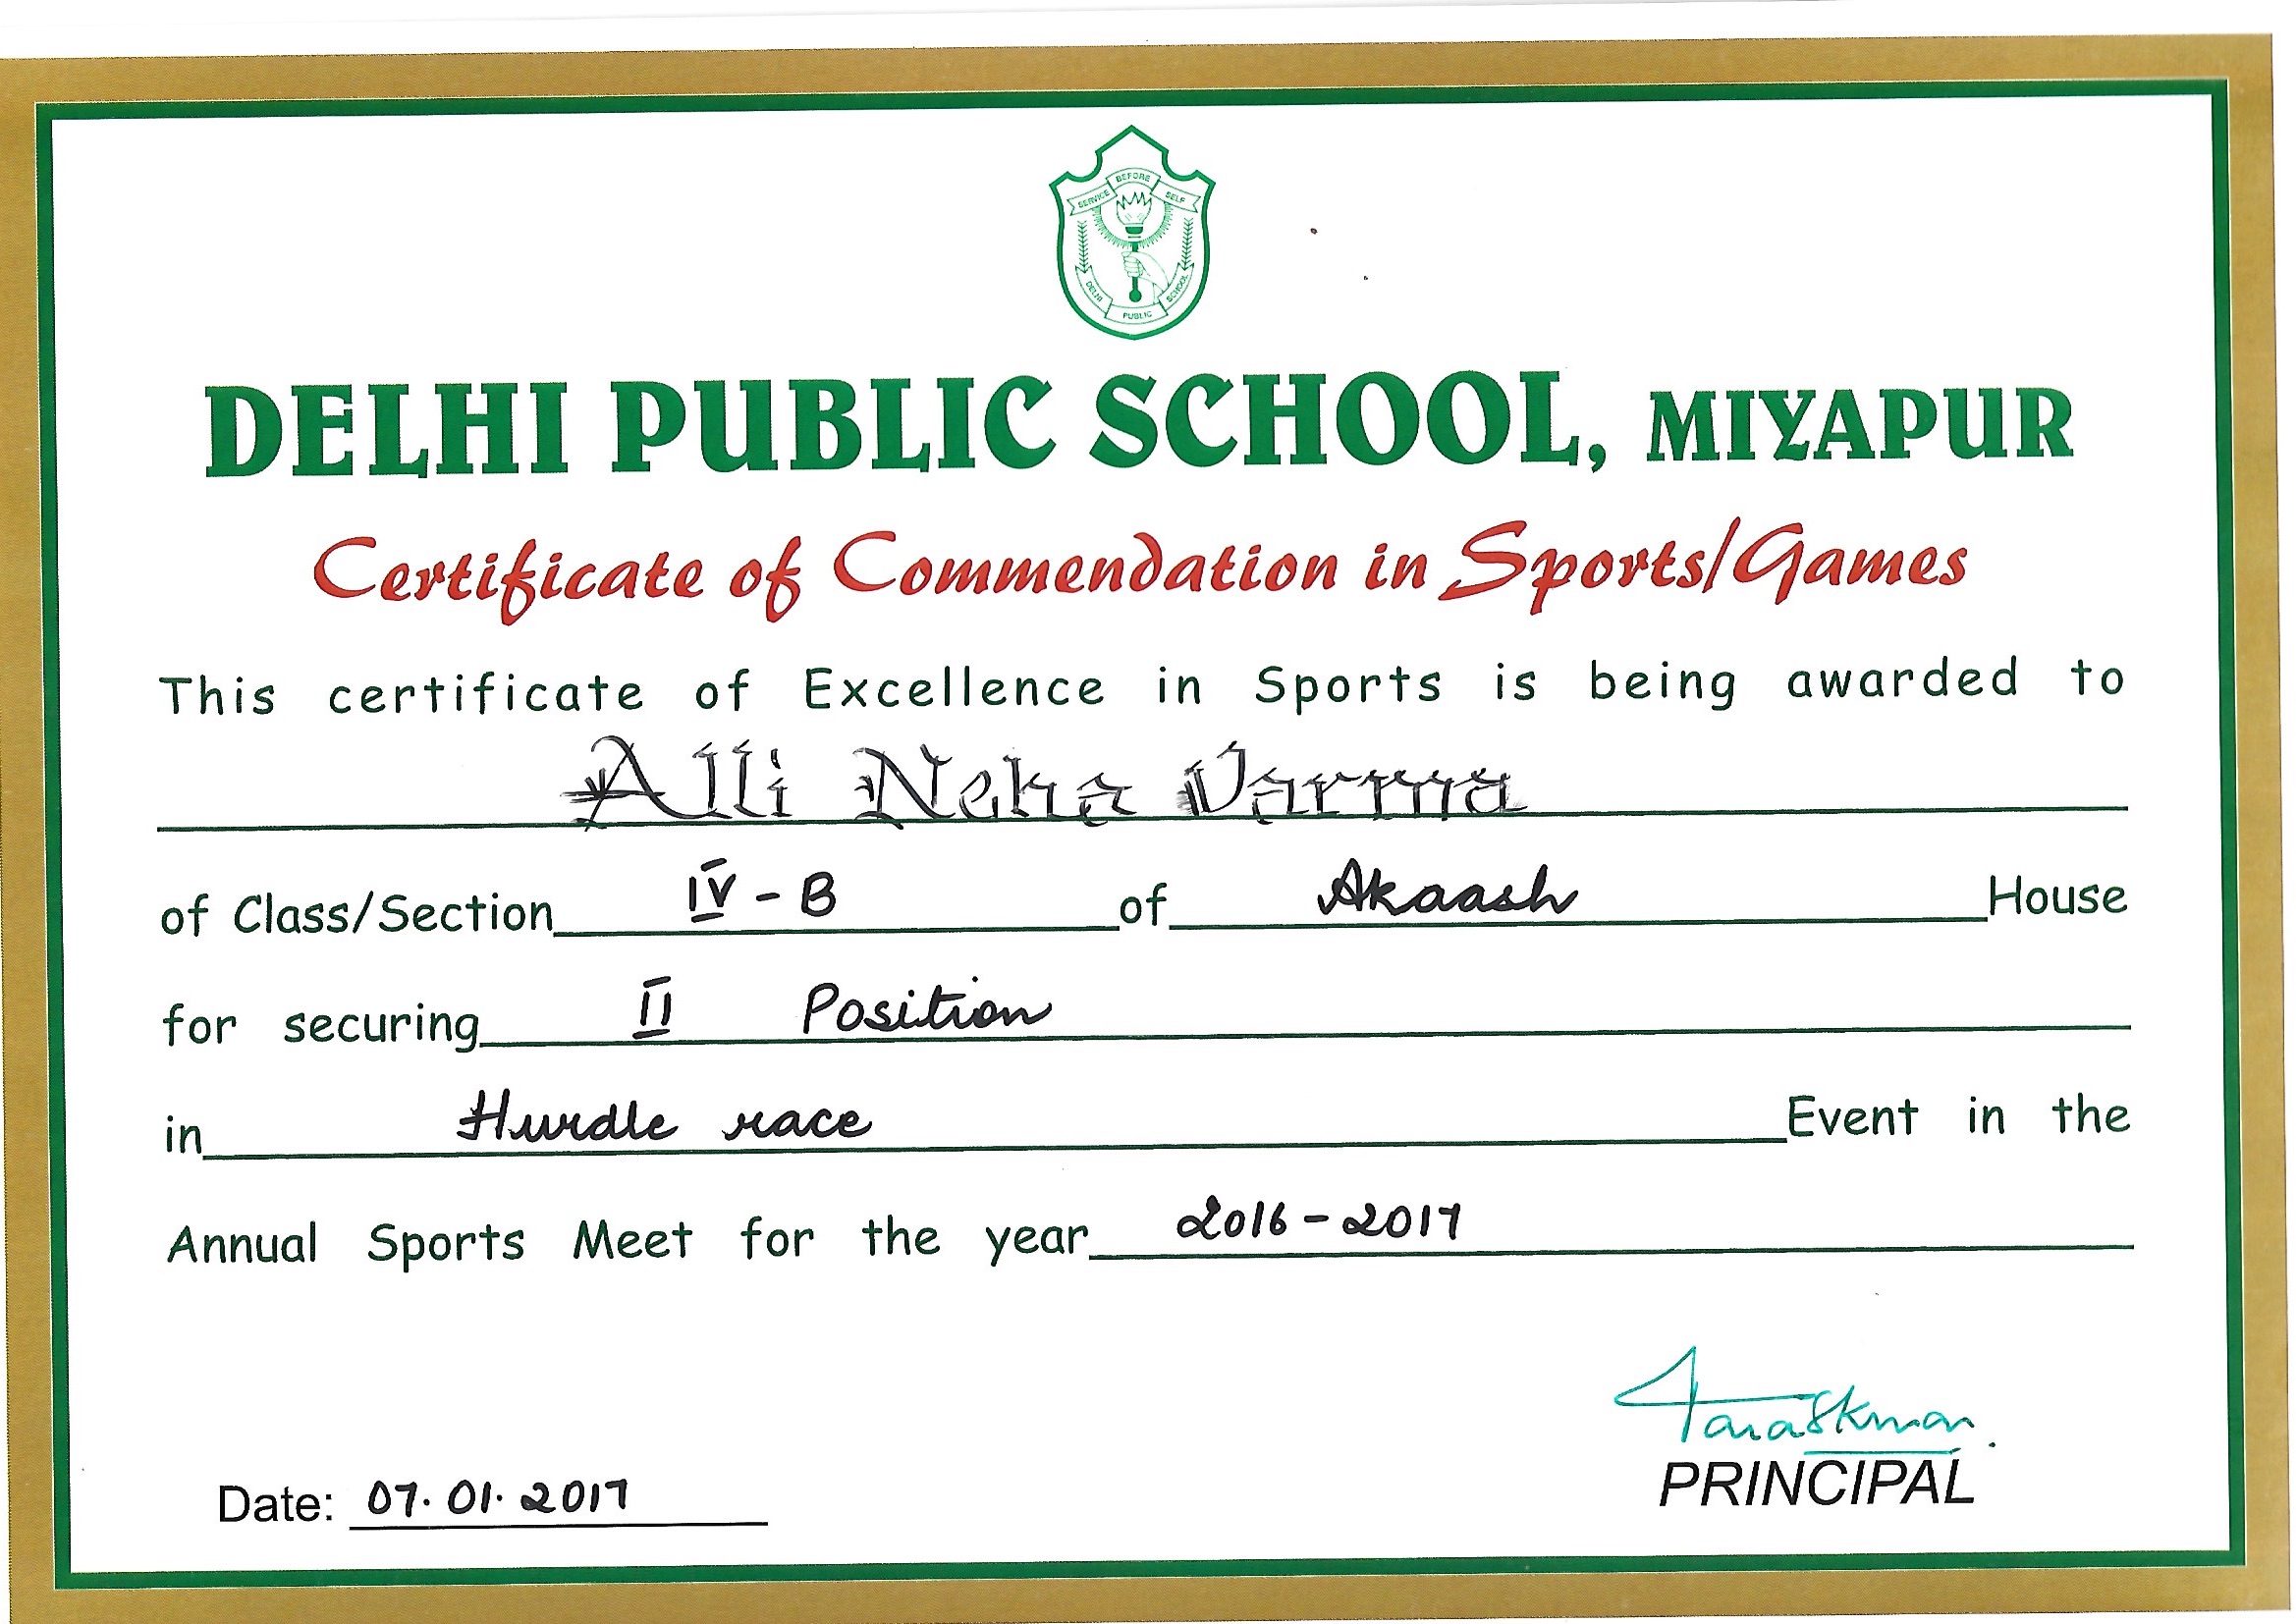 SERVICE BEFORE SELF
DELHI PUBLIC SCHOOL
DELHI PUBLIC SCHOOL, MIYAPUR
Certificate of Commendation in Sports/Games
This certificate of Excellence in Sports is being awarded to
Alli Neha Varma
of Class/Section IV - B of Akaash House
for securing II Position
in Hurdle race Event in the
Annual Sports Meet for the year 2016 - 2017
PRINCIPAL
Date: 07.01.2017